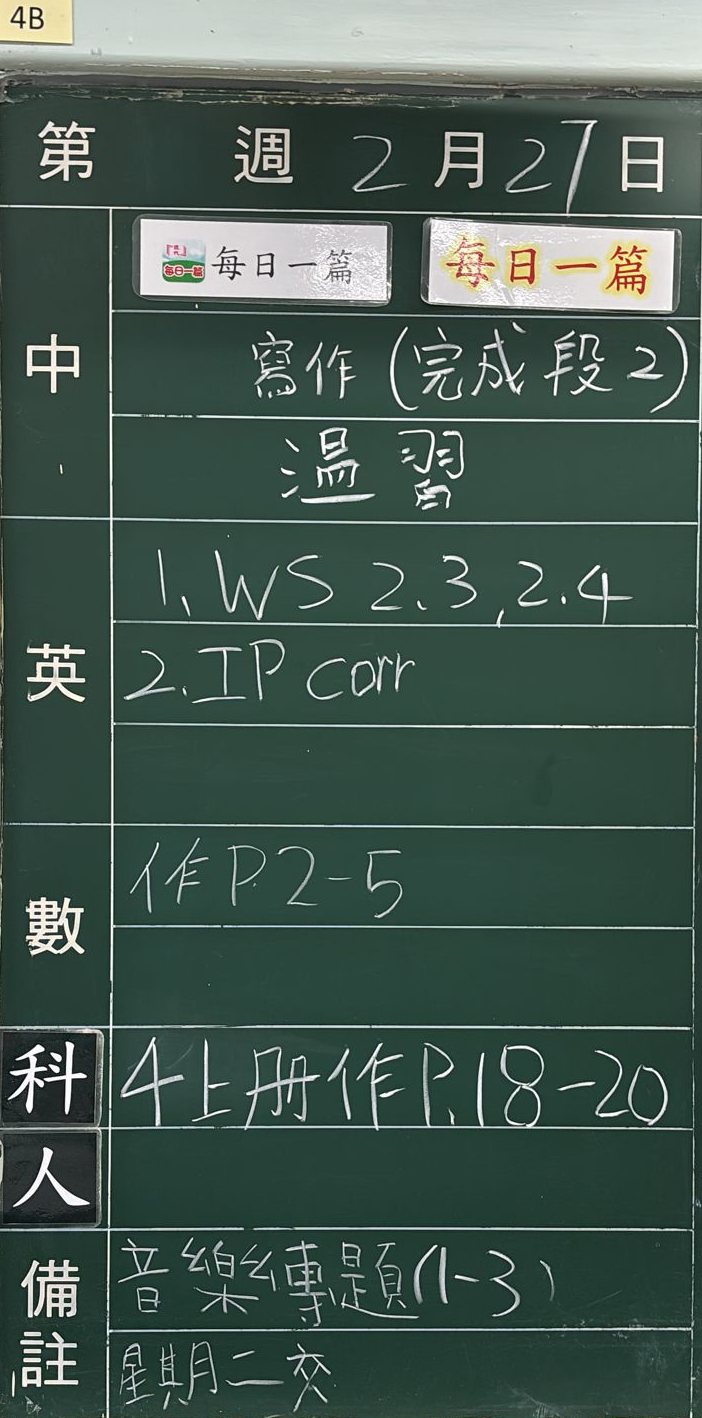 4B
第 週 2 月 27 日
中
每日一篇 每日一篇 每日一篇
寫作 (完成段2)
溫習
英
1. WS 2.3, 2.4
2. IP corr
數
作P.2-5
科 4上册作P.18-20
人
備註
音樂專題(1-3)
星期二交